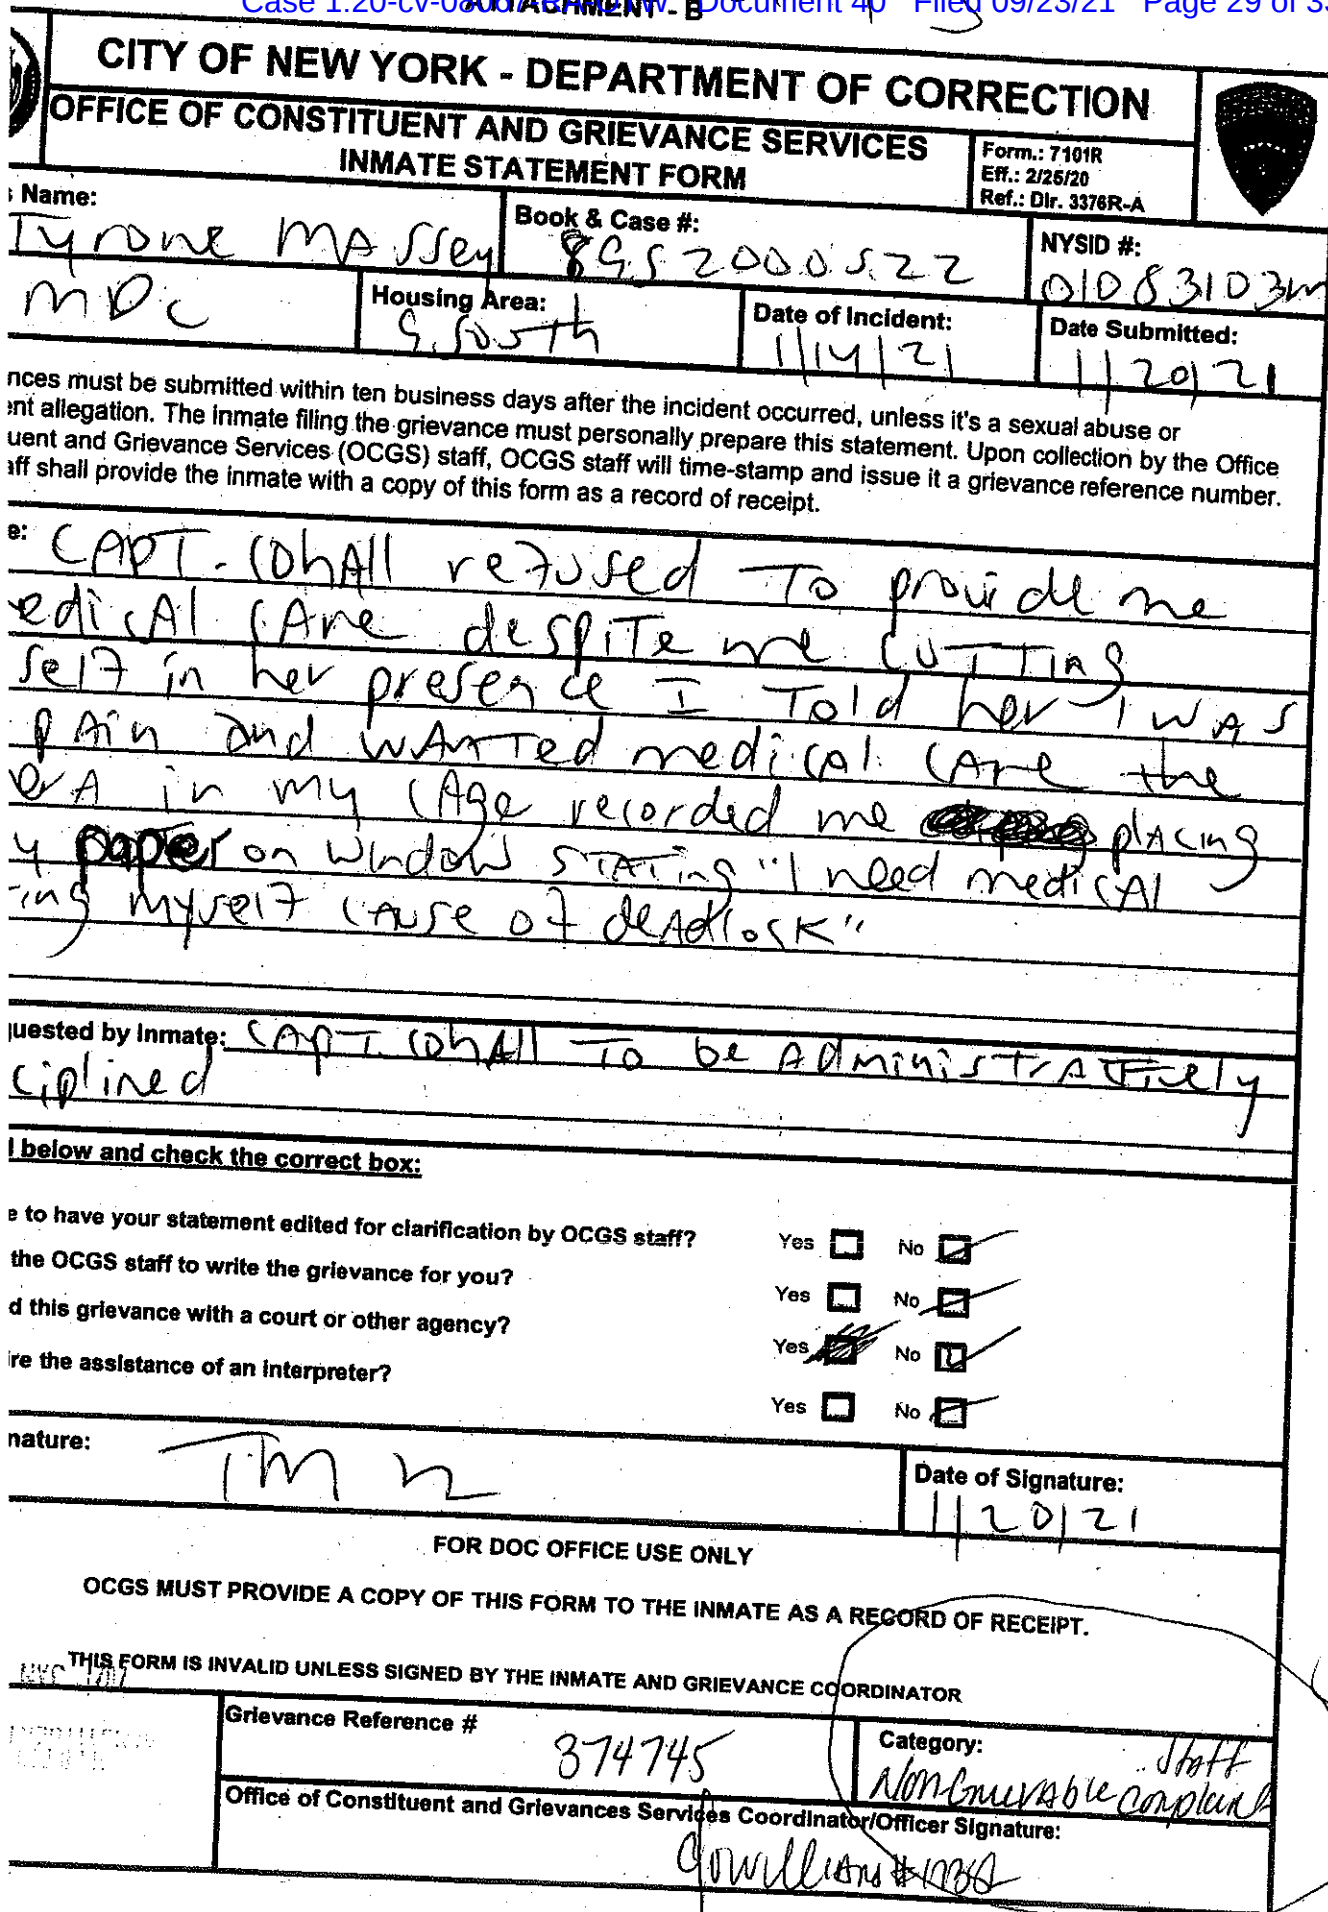 Case 1:20-cv-0 Document 40 Filed 09/23/21 Page 29 of 33
ATTACHMENT - B
CITY OF NEW YORK - DEPARTMENT OF CORRECTION
OFFICE OF CONSTITUENT AND GRIEVANCE SERVICES
INMATE STATEMENT FORM
Form.: 7101R
Eff.: 2/25/20
Ref.: Dir. 3376R-A
s Name:
Tyrone MASSey
Book & Case #:
8952000522
NYSID #:
01083103m
MDC
Housing Area:
9 South
Date of Incident:
1/14/21
Date Submitted:
1/20/21
nces must be submitted within ten business days after the incident occurred, unless it's a sexual abuse or
ent allegation. The inmate filing the grievance must personally prepare this statement. Upon collection by the Office
uent and Grievance Services (OCGS) staff, OCGS staff will time-stamp and issue it a grievance reference number.
aff shall provide the inmate with a copy of this form as a record of receipt.
e: CAPT. COhAll refused To provide me
edical CAre despite me CUTTing
self in her presence I Told her I WAS
pAin and wANTed medicAl CAre the
erA in my CAge recorded me placing
y paper on window STATing "I need medicAl
ing myself CAuse of deAdlock"
quested by Inmate: CAPT. COhAll To be AdminisTrATively
ciplined
l below and check the correct box:
e to have your statement edited for clarification by OCGS staff? Yes No
the OCGS staff to write the grievance for you? Yes No
d this grievance with a court or other agency? Yes No
ire the assistance of an interpreter? Yes No
nature: TM
Date of Signature:
1/20/21
FOR DOC OFFICE USE ONLY
OCGS MUST PROVIDE A COPY OF THIS FORM TO THE INMATE AS A RECORD OF RECEIPT.
THIS FORM IS INVALID UNLESS SIGNED BY THE INMATE AND GRIEVANCE COORDINATOR
Grievance Reference #
374745
Category: Staff
Non Grievable Complaint
Office of Constituent and Grievances Services Coordinator/Officer Signature: